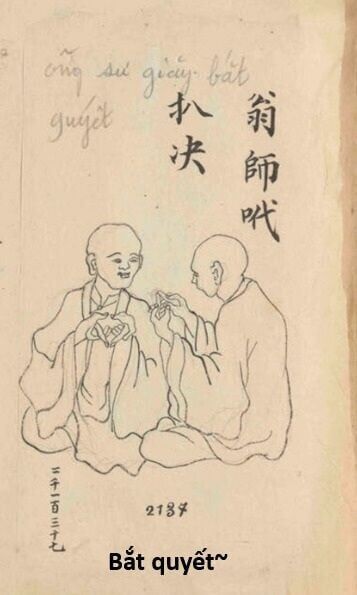 ông sư giảy bắt
quyết
翁師𠰺
扒决
二千一百三十七
2137
Bắt quyết~